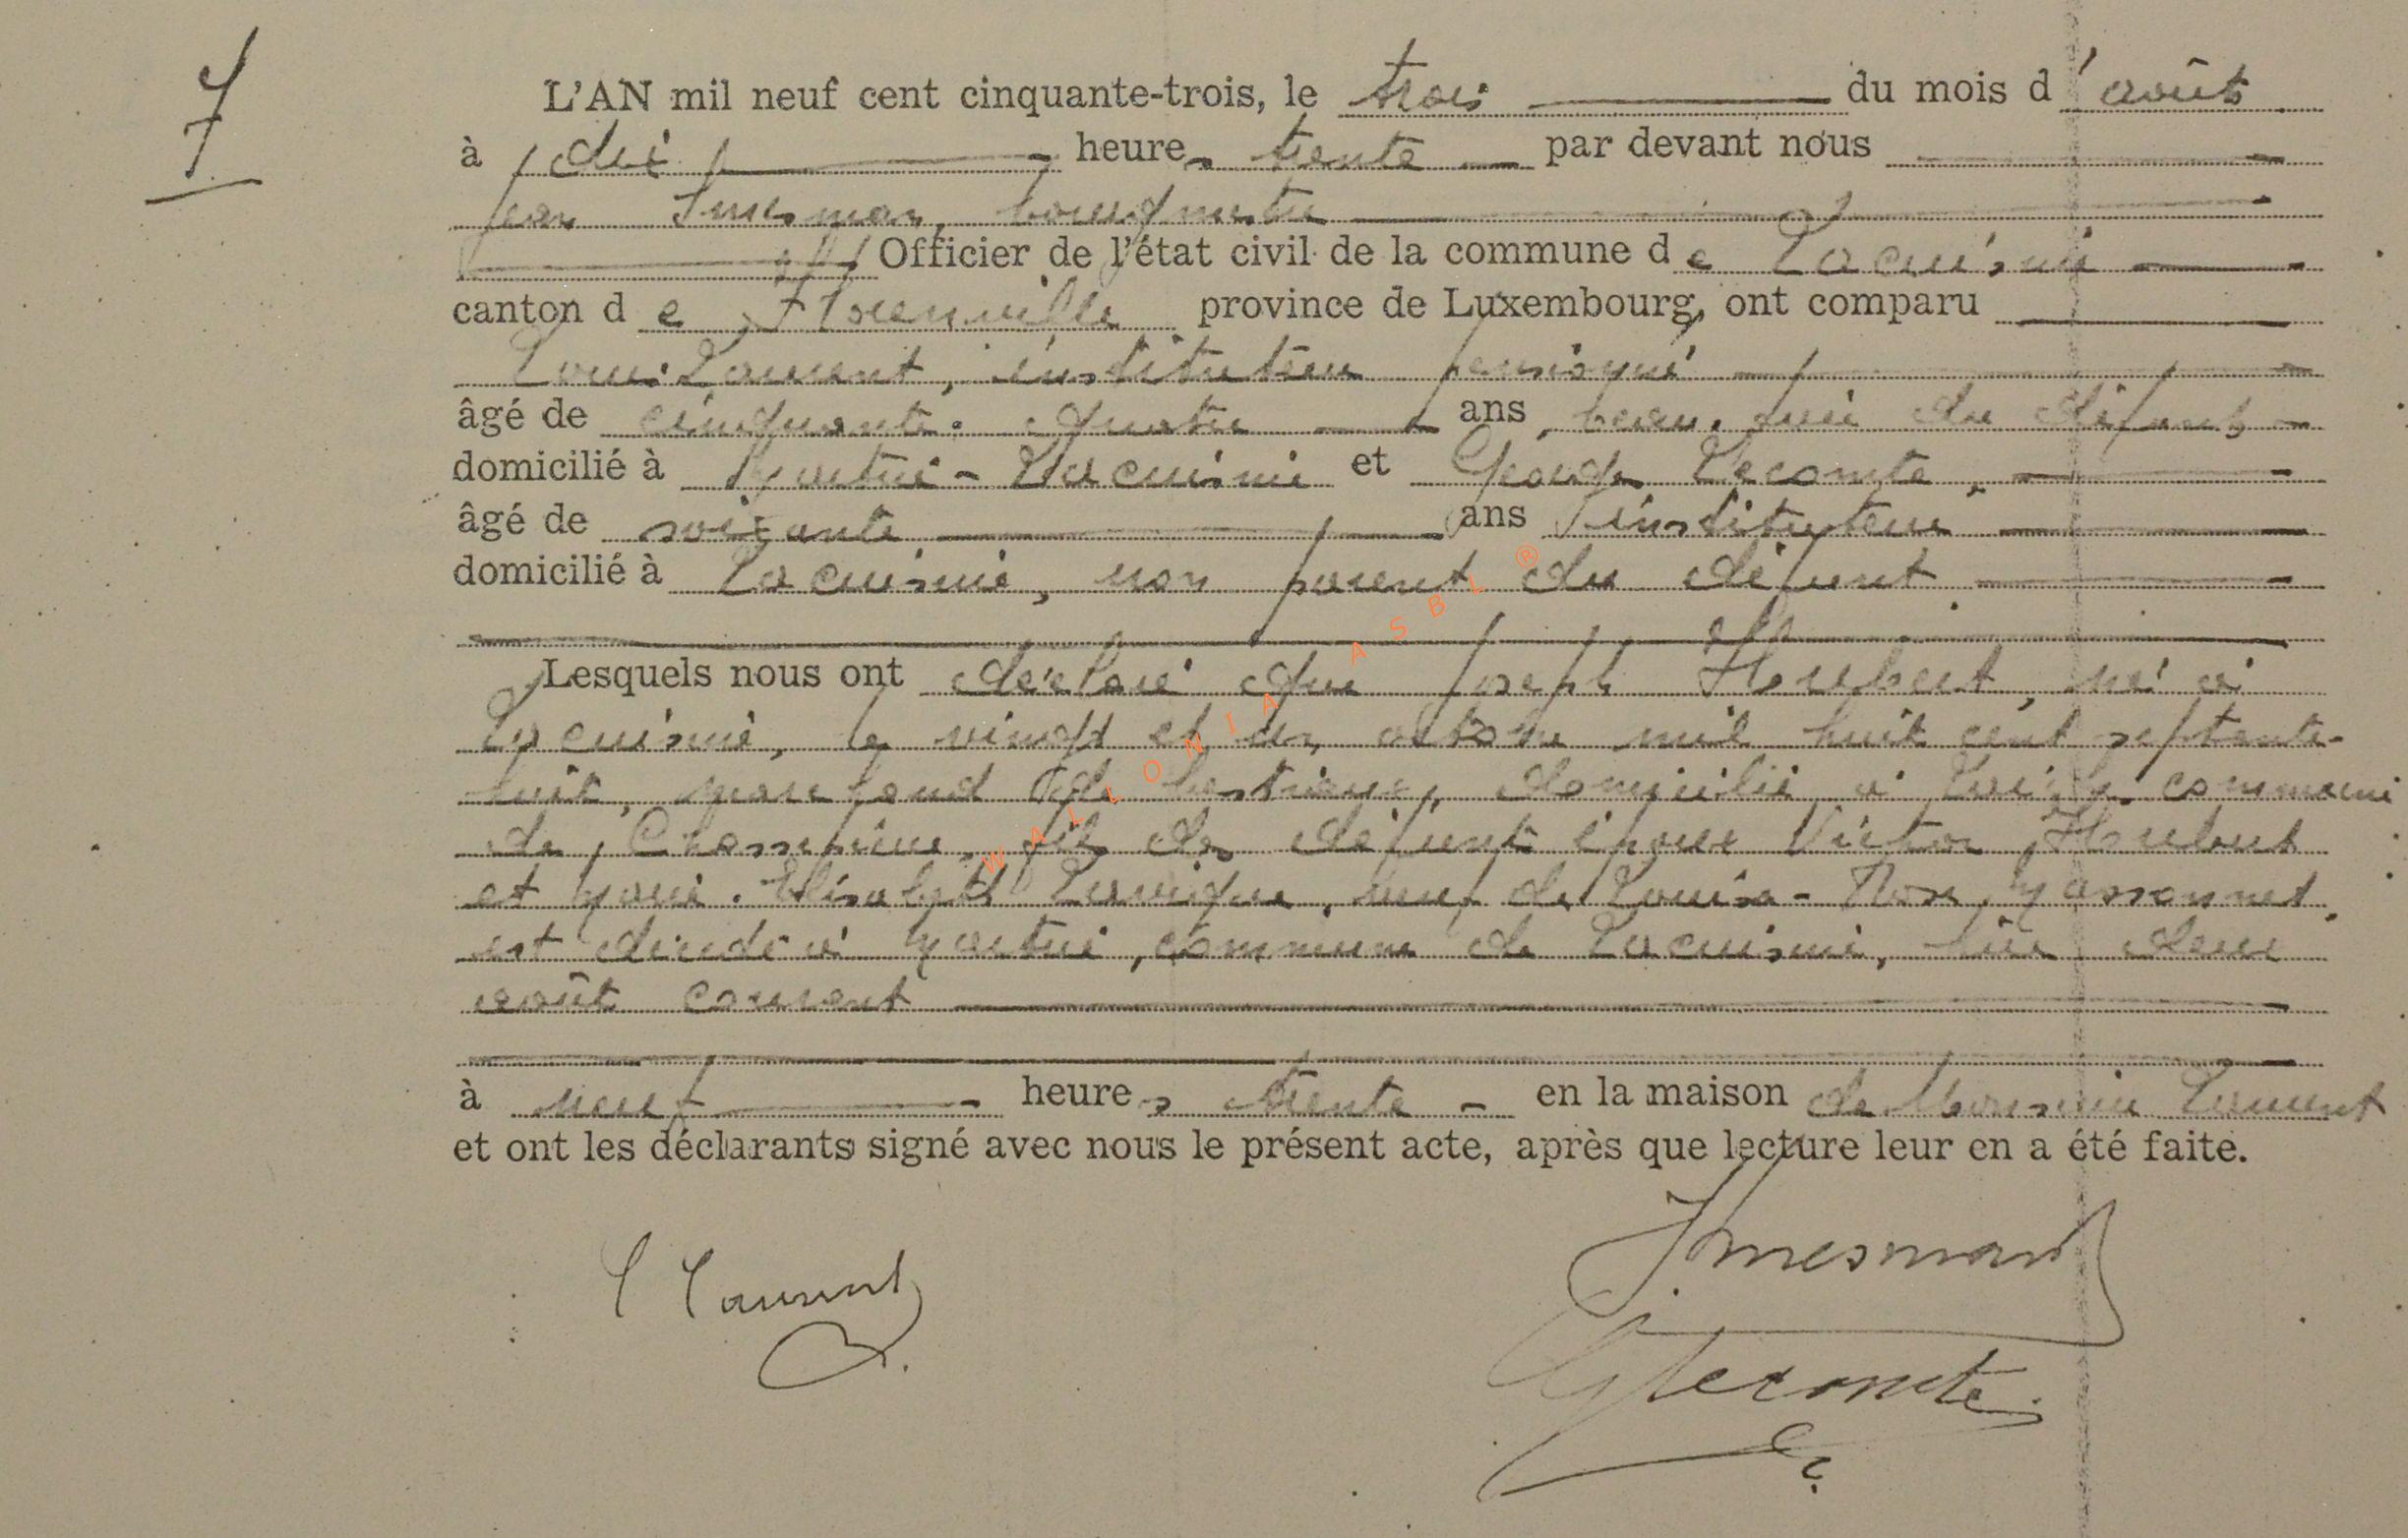 7
L'AN mil neuf cent cinquante-trois, le trois du mois d'août
à dix heures trente par devant nous
Jean bourgmestre
Officier de l'état civil de la commune de Lacuisine
canton de Florenville province de Luxembourg, ont comparu
Louis Laurent, instituteur pensionné
âgé de cinquante-quatre ans, beau-frère du défunt
domicilié à Martué-Lacuisine et Georges Lecomte,
âgé de soixante ans instituteur
domicilié à Lacuisine, non parent du défunt
Lesquels nous ont déclaré que Joseph Houbert, né à
Lacuisine, le vingt et un octobre mil huit cent septante-
huit, marchand de bestiaux, domicilié à commune
de Chassepierre, fils des défunts époux Victor Houbert
et Marie-Elisabeth veuf de Louisa-Rose Massonnet,
est décédé à Martué, commune de Lacuisine, hier deux
août courant
à neuf heures trente en la maison de Monsieur Laurent
et ont les déclarants signé avec nous le présent acte, après que lecture leur en a été faite.
L Laurent
G Lecomte
WALLONIA ASBL ®